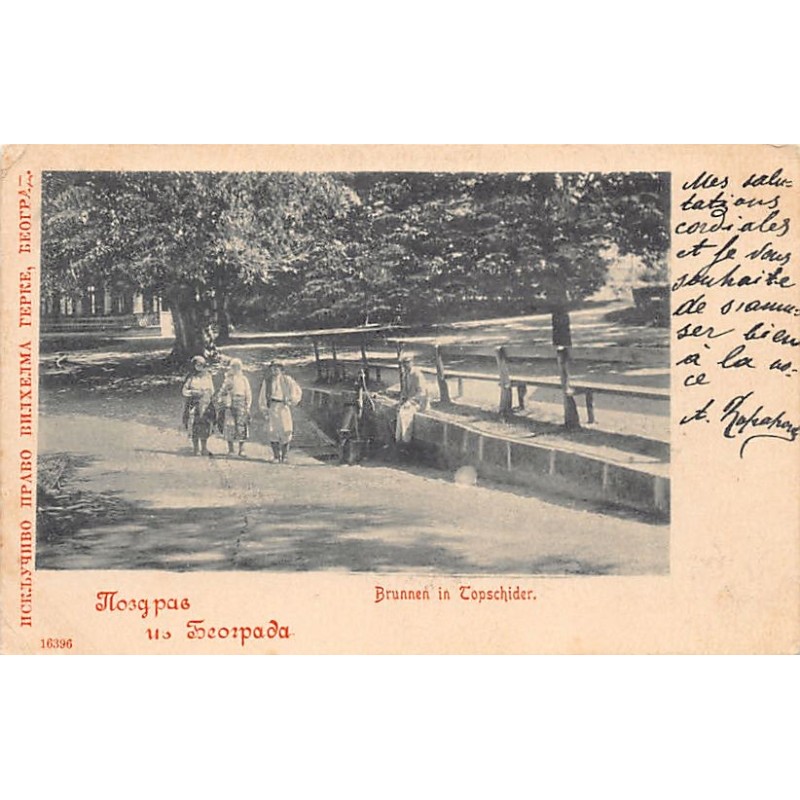 ИСКЉУЧИВО ПРАВО ВИЛХЕЛМА ГЕРКЕ, БЕОГРАД
Mes salu-
tations
cordiales
et je vous
souhaite
de s'amu-
ser bien
à la no-
ce
A.
Brunnen in Topschider.
Поздрав
из Београда
16396